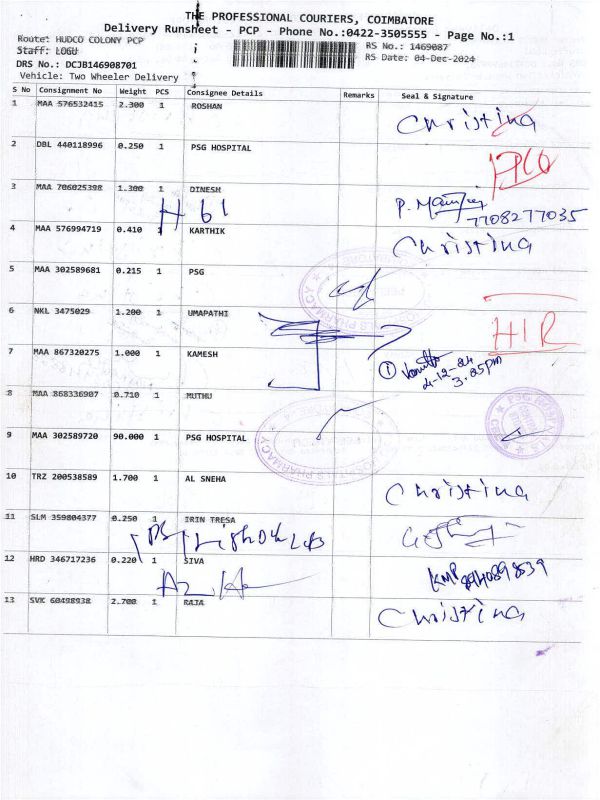 THE PROFESSIONAL COURIERS, COIMBATORE
Delivery Runsheet - PCP - Phone No.:0422-3505555 - Page No.:1
Route: HUDCO COLONY PCP
RS No.: 1469087
Staff: LOGU
RS Date: 04-Dec-2024
DRS No.: DCJB146908701
Vehicle: Two Wheeler Delivery
S No Consignment No Weight PCS Consignee Details Remarks Seal & Signature
1 MAA 576532415 2.300 1 ROSHAN Christina
2 DBL 440118996 0.250 1 PSG HOSPITAL
3 MAA 706025398 1.300 1 DINESH
H 61
7708277035
4 MAA 576994719 0.410 1 KARTHIK Christina
5 MAA 302589681 0.215 1 PSG
6 NKL 3475029 1.200 1 UMAPATHI HIR
7 MAA 867320275 1.000 1 KAMESH
4-12-24
3.25pm
8 MAA 868336907 0.710 1 MUTHU
9 MAA 302589720 90.000 1 PSG HOSPITAL
10 TRZ 200538589 1.700 1 AL SNEHA Christina
11 SLM 359804377 0.250 1 IRIN TRESA
12 HRD 346717236 0.220 1 SIVA
13 SVK 60498938 2.700 1 RAJA Christina